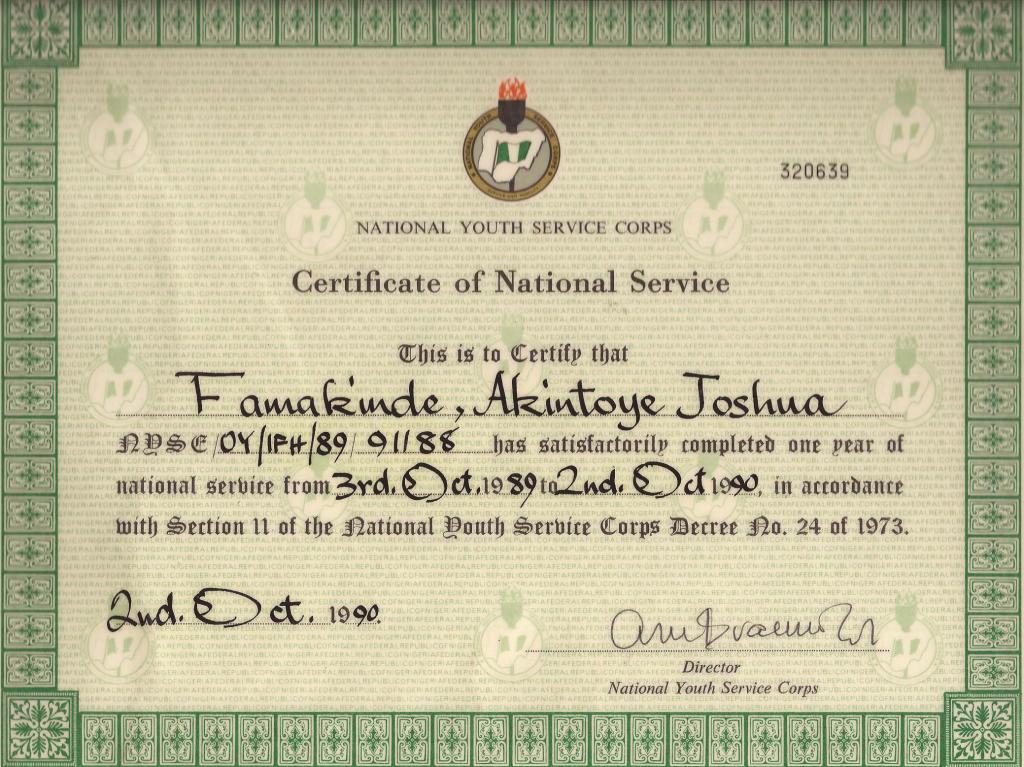 320639
NATIONAL YOUTH SERVICE CORPS
Certificate of National Service
This is to Certify that
Famakinde, Akintoye Joshua
NYSC/OY/IFH/89/91188 has satisfactorily completed one year of
national service from 3rd. Oct. 1989 to 2nd. Oct 1990, in accordance
with Section 11 of the National Youth Service Corps Decree No. 24 of 1973.
2nd. Oct. 1990.
Director
National Youth Service Corps